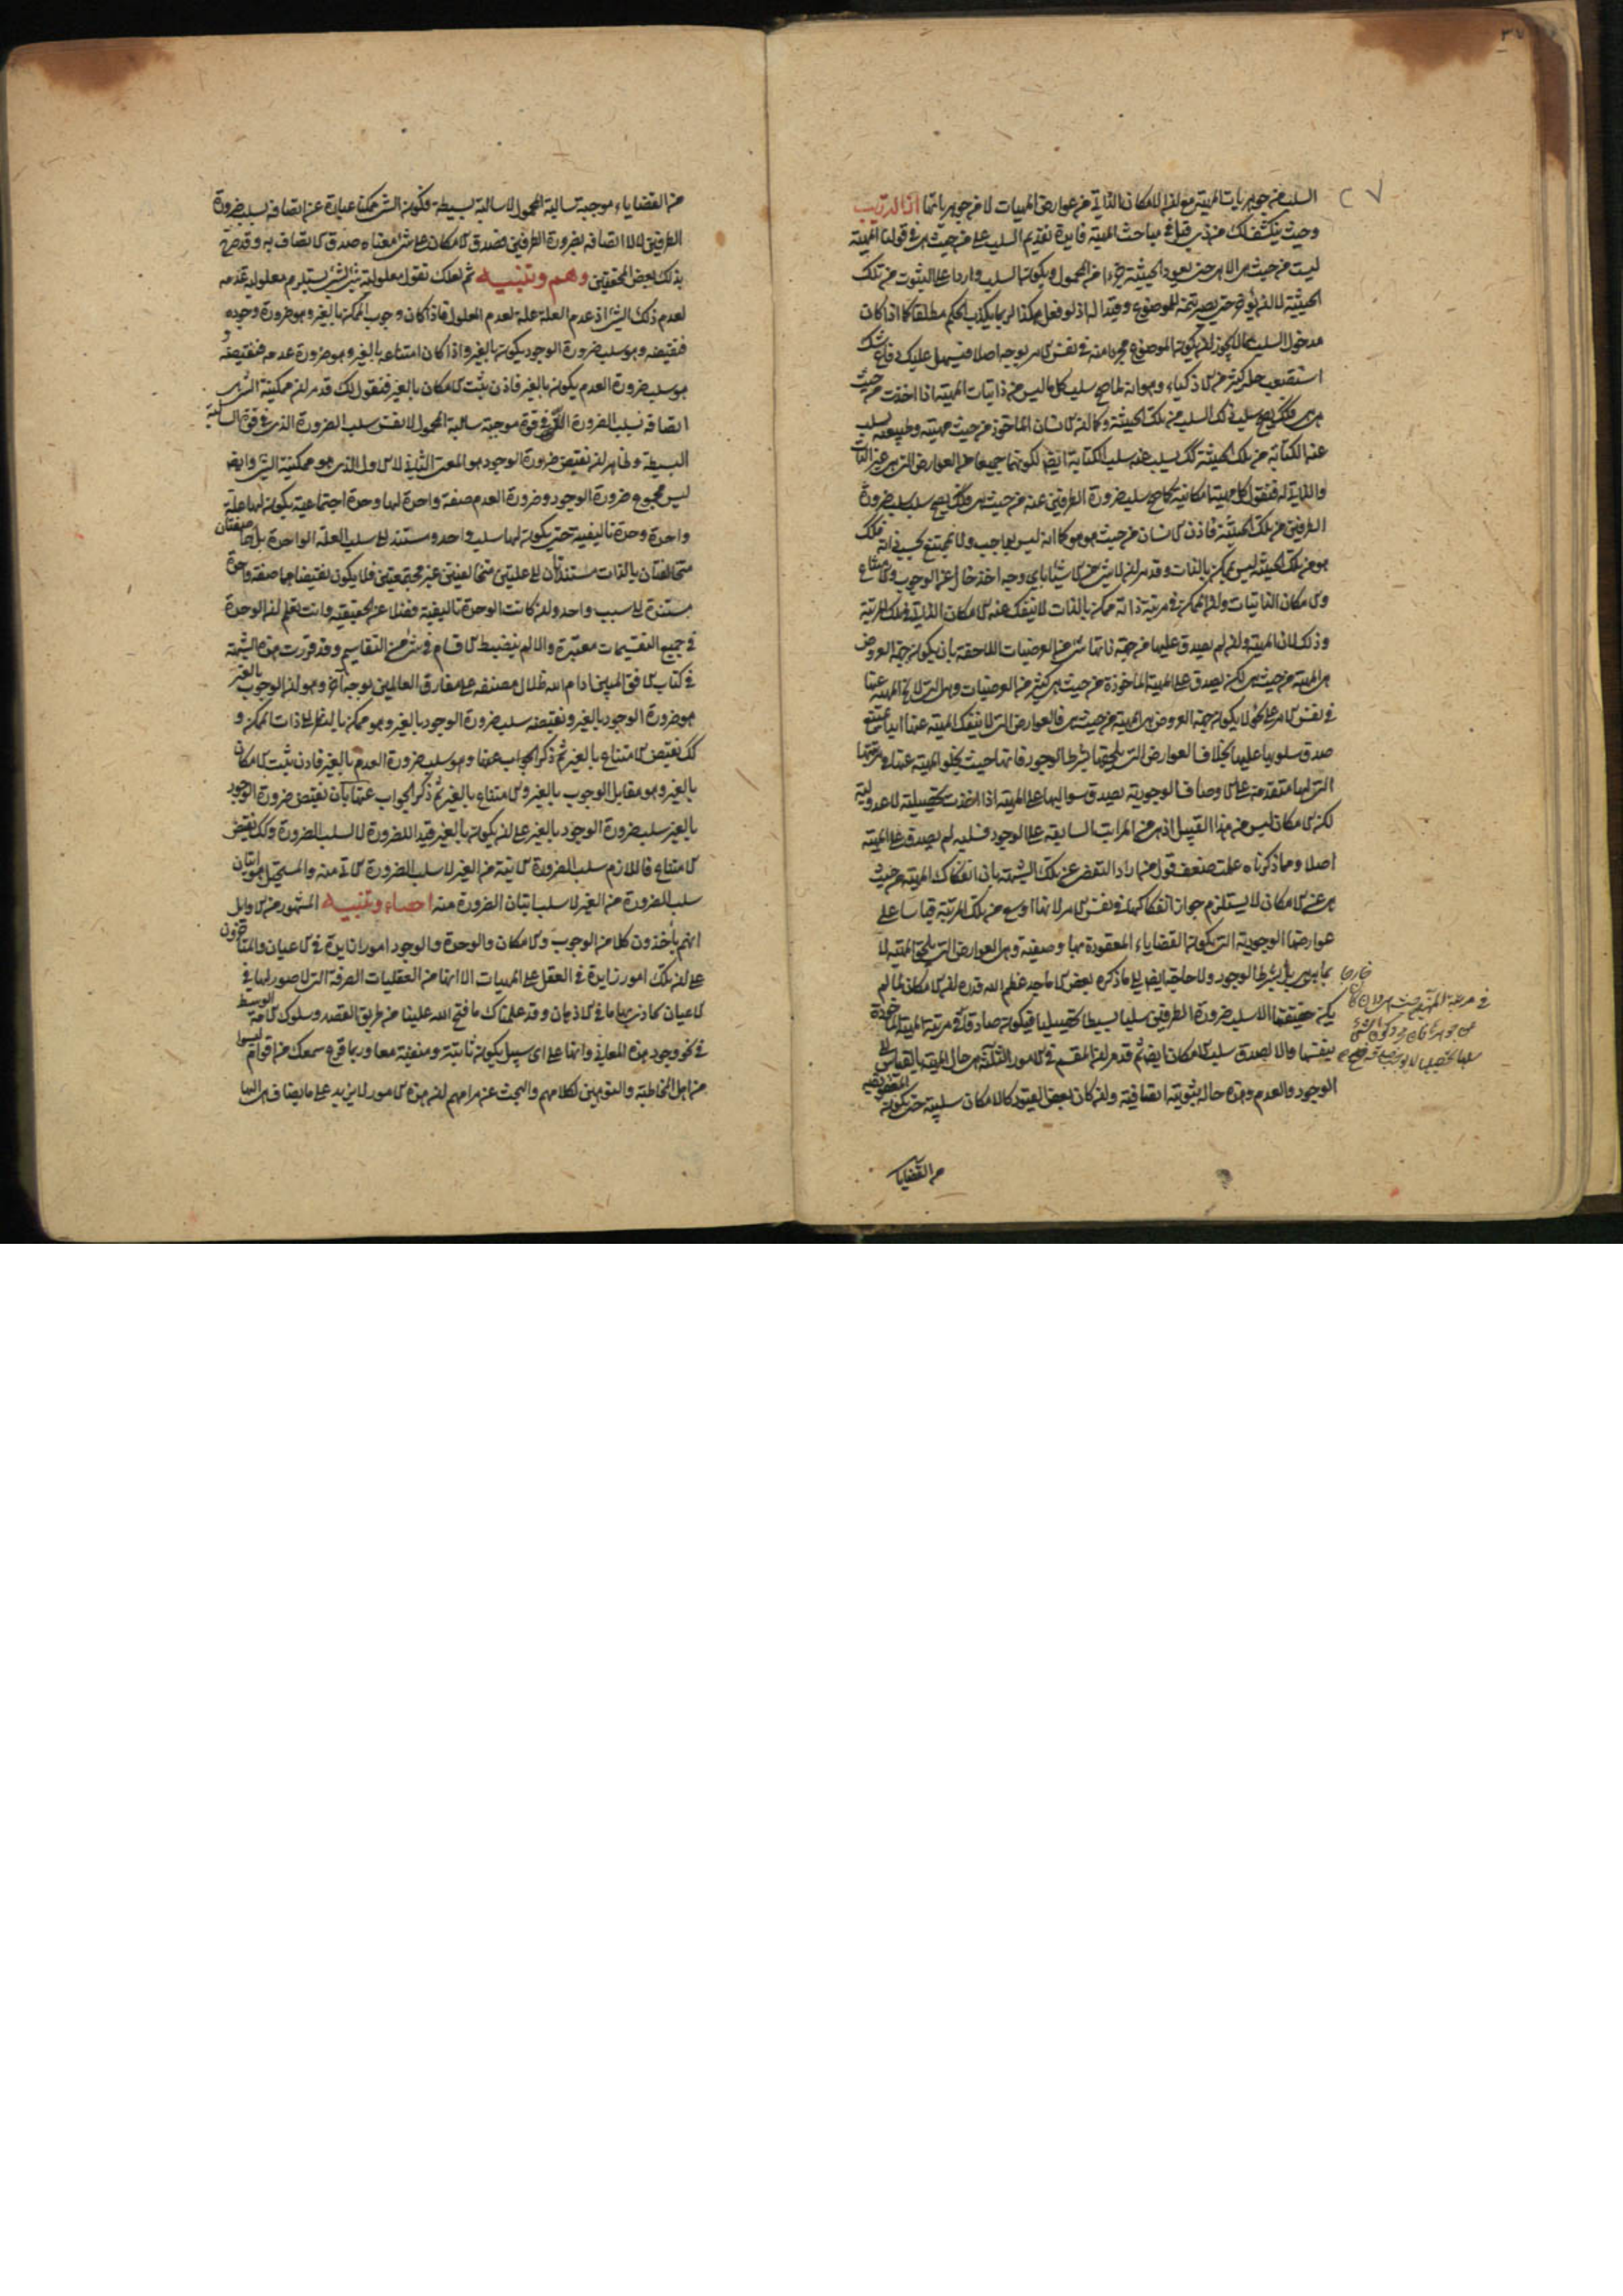 السلب من جوهريات المهية مع ان الامكان الذاتي من عوارض المهيات لا من جوهرياتها
وحيث ينكشف لك من ذي قبل في مباحث المهية فايدة تقديم السلب على من حيث هي في قولنا المهية
ليست من حيث هي الا هي حتى يعود الحيثية جزءا من المحمول ويكون السلب واردا على الثبوت من تلك
الحيثية لا ان يؤخر حتى يصير تتمة للموضوع وقيدا له اذ لو فعل هكذا لربما يكذب الحكم مطلقا كما اذا كان
مدخول السلب مما لا يجوز ان يكون الموضوع مجردا منه في نفس الامر بوجه اصلا فيسهل عليك دفاع شك
استصعب حله كثير من الاذكياء وهو انه لما صح سلب كل ما ليس من ذاتيات المهية اذا اخذت من حيث
هي هي فلك يصح سلب ذلك السلب من تلك الحيثية وكما ان الانسان الماخوذ من حيث مهيته وطبيعته يسلب
عنه الكتابة من تلك الحيثية كك يسلب عنه سلب الكتابة ايضا لكونهما جميعا من العوارض التي هي غير الذات
والذاتي له فنقول كل مهية امكانية كما صح سلب ضرورة الطرفين عنه من حيث هي فلك يصح سلب سلب ضرورة
الطرفين من تلك الحيثية فاذن الانسان من حيث هو هو كما انه ليس بواجب ولا بممتنع بحسب ذاته فلك
هو من تلك الحيثية ليس بممكن بالذات وقد مر ان لا شي من الاشياء باي وجه اخذ خال عن الوجوب والامتناع
والامكان الذاتيات وان الممكن في مرتبة ذاته ممكن بالذات لا ينفك عنه الامكان الذاتي في تلك المرتبة
وذلك لان المهية وان لم يصدق عليها من جهة ذاتها شي من العرضيات اللاحقة بان يكون جهة العروض
هي المهية من حيث هي لكن يصدق على المهية الماخوذة من حيث هي كثير من العرضيات وهي التي لا يخلو المهية عنها
في نفس الامر على ان لا يكون جهة العروض هي المهية من حيث هي فالعوارض التي لا ينفك المهية عنها ابدا يمتنع
صدق سلوبها عليها بخلاف العوارض التي يلحقها بشرط الوجود فانها حيث يخلو المهية عنها في مرتبتها
التي لها متقدمة على الاوصاف الوجودية يصدق سوالبها على المهية اذا اخذت تحصيلية لا عدولية
لكن الامكان ليس من هذا القبيل اذ هي من المراتب السابقة على الوجود فسلبه لم يصدق على المهية
اصلا ومما ذكرناه علمت ضعف قول من اراد التفصي عن تلك الشبهة بان انفكاك المهية من حيث
هي عن الامكان لا يستلزم جواز انفكاكها في نفس الامر لانها اوسع من تلك المرتبة قياسا على
عوارضها الوجودية التي يكون القضاياء المعقودة بها وصفية وهي العوارض التي يلحق المهية لا
بما هي هي بل بشرط الوجود ولا حاجة ايضا الى ما ذكره بعض الاماجد عظم الله قدره ان الامكان لما لم
يكن حقيقتها الا سلب ضرورة الطرفين سلبا بسيطا تحصيليا فيكون صادقا في مرتبة المهية الماخوذة
بنفسها والا لصدق سلب الامكان ايضا ثم قد مر ان المقسم في الامور الثلثة هي حال المهية بالقياس الى
الوجود والعدم وهذه حال ثبوتية اتصافية وان كان بعض القيود كالامكان سلبية حتى يكون
من القضايا
من القضاياء موجبة سالبة المحمول لا سالبة بسيطة فكون الشي ممكنا عبارة عن اتصافه بسلب ضرورة
الطرفين لا لا اتصافه بضرورة الطرفين فصدق الامكان على شي معناه صدق الاتصاف به وقد صرح
بذلك بعض المحققين وهم وتنبيه ثم لعلك تقول معلولية شي لشي يستلزم معلولية عدمه
لعدم ذلك الشي اذ عدم العلة علة لعدم المعلول فاذا كان وجوب الممكن بالغير وهو ضرورة وجوده
فنقيضه وهو سلب ضرورة الوجود يكون بالغير واذا كان امتناعه بالغير وهو ضرورة عدمه فنقيضه و
هو سلب ضرورة العدم يكون بالغير فاذن يثبت الامكان بالغير فنقول لك قد مر ان ممكنية الشي هي
اتصافه بسلب الضرورة الذي في قوة موجبة سالبة المحمول لا نفس سلب الضرورة الذي في قوة السالبة
البسيطة وظاهر ان نقيض ضرورة الوجود هو المعنى الثاني لا الاول الذي هو ممكنية الشي وايضا
ليس مجموع ضرورة الوجود وضرورة العدم صفة واحدة لها وحدة اجتماعية يكون لها علة
واحدة وحدة تاليفية حتى يكون لها سلب واحد ومستند الى سلب العلة الواحدة بل هما صفتان
متخالفتان بالذات مستندتان الى علتين متخالفتين غير مجتمعتين فلا يكون نقيضاهما صفة واحدة
مستندة الى سبب واحد ولو كانت الوحدة تاليفية فضلا عن الحقيقية وانت تعلم ان الوحدة
في جميع التقسيمات معتبرة والا لم ينضبط الاقسام في شي من التقاسيم وقد قررت هذه الشبهة
في كتاب الافق المبين ادام الله ظلال مصنفه على مفارق العالمين بوجه آخر وهو ان الوجوب بالغير
هو ضرورة الوجود بالغير ونقيضه سلب ضرورة الوجود بالغير وهو ممكن بالنظر الى ذات الممكن و
كك نقيض الامتناع بالغير ثم ذكر الجواب عنها وهو سلب ضرورة العدم بالغير فاذن يثبت الامكان
بالغير وهو مقابل الوجوب بالغير والامتناع بالغير ثم ذكر الجواب عنها بان نقيض ضرورة الوجود
بالغير سلب ضرورة الوجود بالغير على ان يكون بالغير قيدا للضرورة لا لسلب الضرورة وكك نقيض
الامتناع فاللازم سلب الضرورة الاتية من الغير لا سلب الضرورة الاتي منه والمستحيل هو اتيان
سلب الضرورة من الغير لا سلب اتيان الضرورة منه احصاء وتنبيه المشهور من الاوايل
انهم ياخذون كلا من الوجوب والامكان والوحدة والوجود امورا زايدة في الاعيان والمتاخرون
على ان تلك امور زايدة في العقل على المهيات الا انها من العقليات الصرفة التي لا صور لها في
الاعيان يحاذي بها ما في الاذهان وقد علمناك ما فتح الله علينا من طريق القصد وسلوك الامة الوسط
في نحو وجود هذه المعاني وانها على اي سبيل يكون ثابتة ومنفية معا وربما قرع سمعك من اقوام ليسوا
من اهل المخاطبة والمتوهمين لكلامهم والبحث عن مرامهم ان هذه الامور لا يزيد على ما يضاف هي اليها